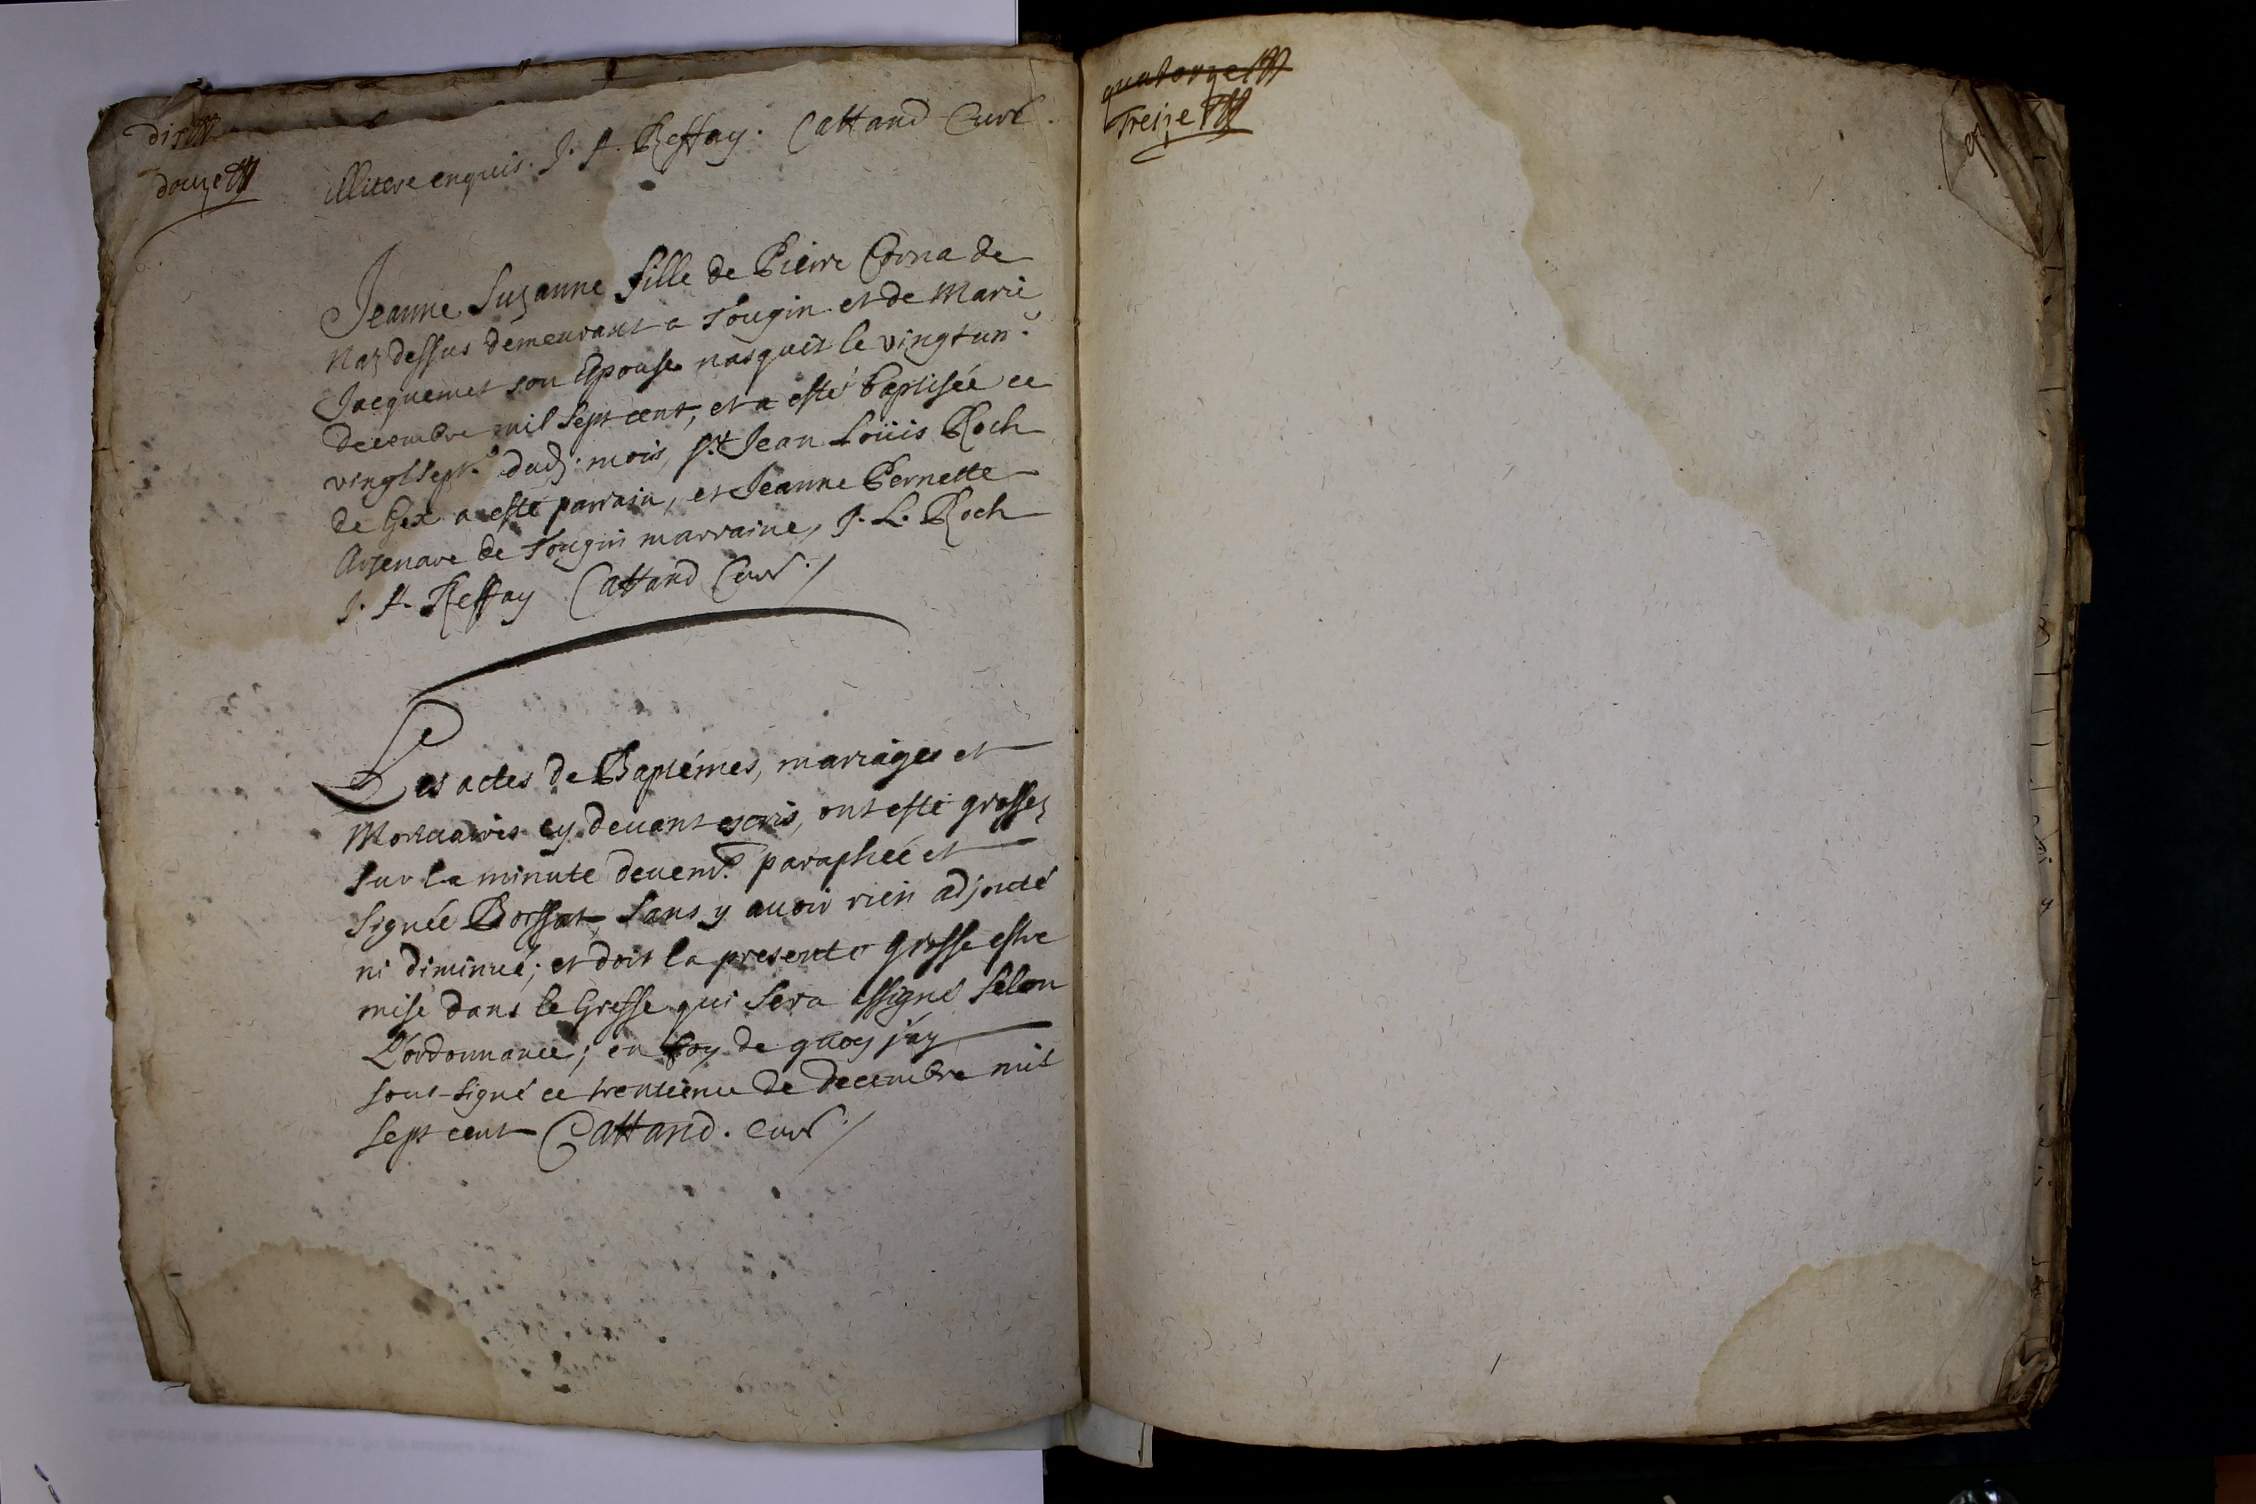 douze
illitere enquis. J. A. Reffay. Cattand Curé.
Jeanne Suzanne fille de Pierre Corna de
Naz dessus demeurant a Tougin et de Marie
Jacquemet son Epouse nasquit le vingtun.e
decembre mil sept cent, et a esté baptisée ce
vingtsept.e dud. mois, s.r Jean Loüis Roch
de Gex a esté parrain, et Jeanne Pernette
de Tougin marraine, J. L. Roch
J. A. Reffay Cattand Curé./
Les actes de Baptémes, mariages et
Mortuaires cy devant escris, ont esté grossez
sur la minute devem.t paraphée et
signée Borssat, sans y avoir rien adjouté
ni diminué; et doit la presente grosse estre
mise dans le Greffe qui sera assigné selon
L'ordonnance; en foy de quoy j'ay
sous-signé ce trentième de decembre mil
sept cent Cattand. curé./
quatorze
Treize